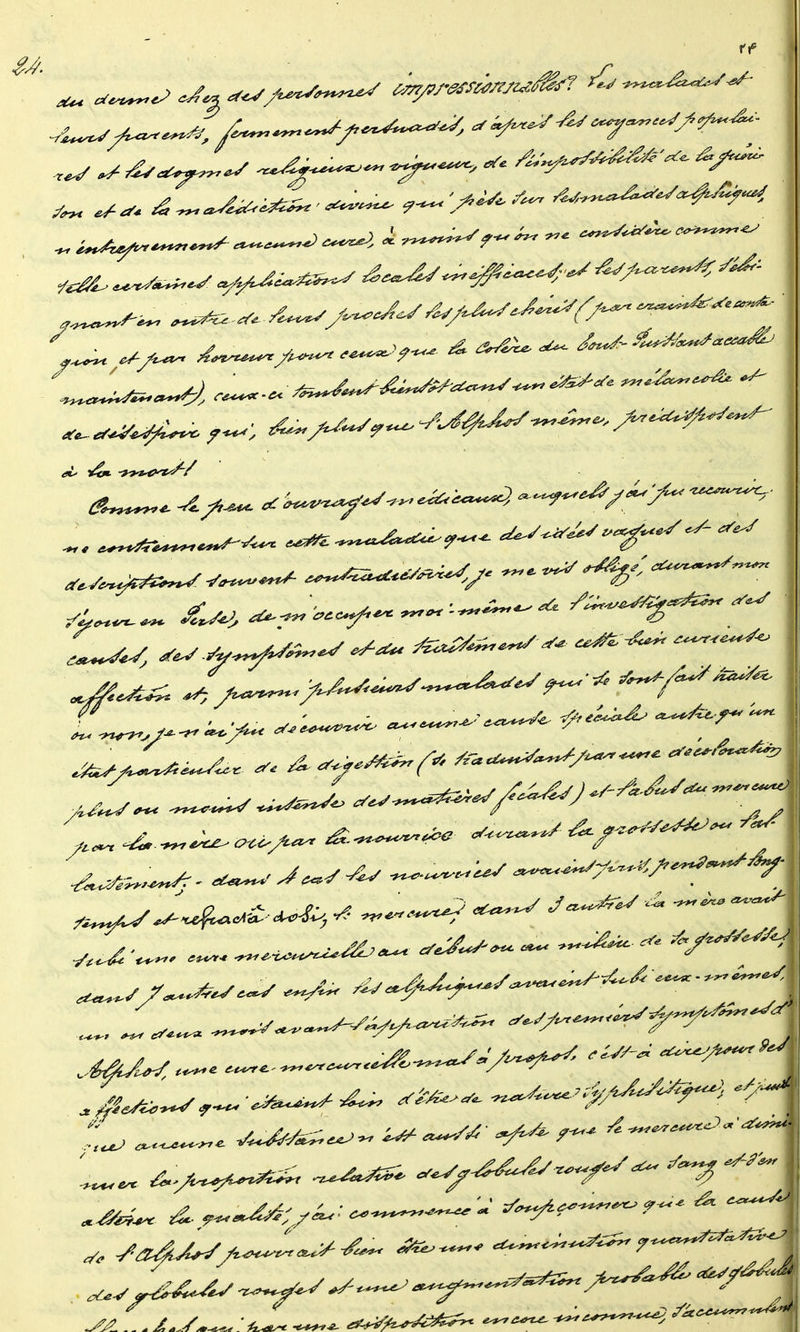 24.
du derme) chez des personnes impressionnables? Les malades et
leurs parents, fermement persuadés, d'après les croyances populai-
res et les dogmes religieux en vigueur, de l'impossibilité de la guéri-
son et de la malédiction divine qui pèse sur les malades alphiques,
n'entreprennent aucune cure, à moins qu'on ne considère comme
telle certaines applications locales inefficaces; et les parents, s'éloi-
gnant en outre de leurs proches les plus chéris (par crainte de conta-
gion et par horreur pour ceux que la Colère du Tout-Puissant accable
maintenant), ceux-ci tombent bientôt dans un état de mélancolie et
de désespoir qui, bien plus que l'Alphos même, prédisposent
à la mort!
Comme le peu d'ouvrages médicaux, auxquels j'ai pu recourir,
ne contiennent sur cette maladie que des idées vagues et des
descriptions souvent contradictoires, je me vis obligé, durant mon
séjour en Perse, de m'occuper moi-même de l'investigation des
causes, des symptômes et du traitement de cette bien curieuse
affection et, parmi plusieurs malades qui se sont fait traiter
ou non, je n'ai pu découvrir aucune cause spéciale autre qu'un
état particulier de la digestion (se traduisant par une décoloration
plus ou moins intense des matières fécales) et l'abus du mercure
par la mère ou par la nourrice durant la grossesse ou l'al-
laitement. - dans 4 cas les nourrices avaient pris, pendant long-
temps et refracta dosi, le mercure; dans 3 autres la mère avait
subi une cure mercurielle au début ou au milieu de la grossesse;
dans 7 autres cas enfin les alphiques avaient subi eux-mêmes,
un ou deux mois avant l'apparition des premiers symptômes d'
Alphos, une cure mercurielle mal à propos, c'est-à dire pour des
affections qui étaient loin d'être de nature syphilitique; et puis
que aucune substance n'est aussi apte que le mercure à dimi-
nuer la proportion relative des globules rouges du sang et d'en
altérer la qualité, j'ai commencé à soupçonner que la cause
de l'Alphos pourrait bien être une diminution quantitative
des globules rouges et une augmentation probable des globules
qui, par une disposition encore inconnue, s'accumulent